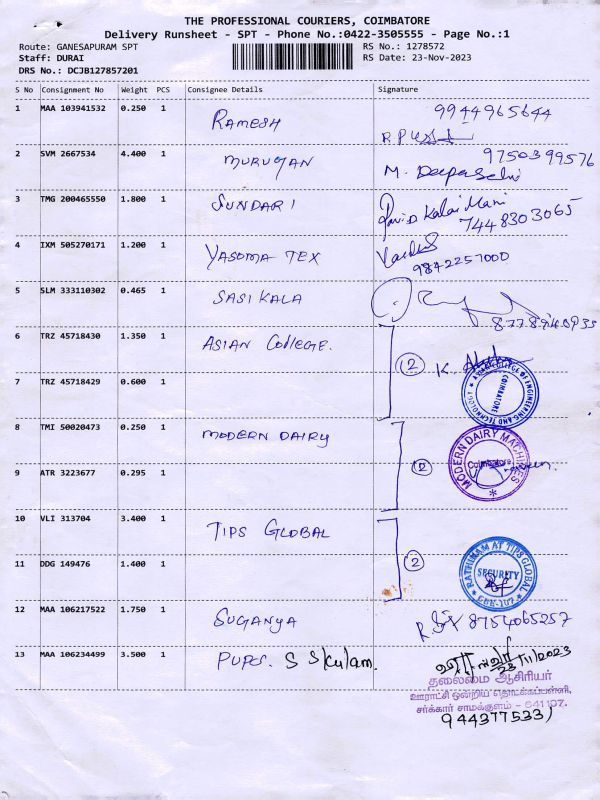 THE PROFESSIONAL COURIERS, COIMBATORE
Delivery Runsheet - SPT - Phone No.:0422-3505555 - Page No.:1
Route: GANESAPURAM SPT
RS No.: 1278572
Staff: DURAI
RS Date: 23-Nov-2023
DRS No.: DCJB127857201
S No Consignment No Weight PCS Consignee Details Signature
1 MAA 103941532 0.250 1 RAMESH 9944965644
2 SVM 2667534 4.400 1 MURUGAN 9750399576
M. Deepaselvi
3 TMG 200465550 1.800 1 SUNDARI David Kalai Mani
7448303065
4 IXM 505270171 1.200 1 YASODHA TEX
9842257000
5 SLM 333110302 0.465 1 SASIKALA
8778940935
6 TRZ 45718430 1.350 1 ASIAN College. (2) K.
7 TRZ 45718429 0.600 1
COLLEGE OF ENGINEERING AND TECHNOLOGY
COIMBATORE
8 TMI 50020473 0.250 1 MODERN DAIRY (2)
MODERN DAIRY MACHINES
Coimbatore
9 ATR 3223677 0.295 1
10 VLI 313704 3.400 1 TIPS GLOBAL (2)
11 DDG 149476 1.400 1
RATHINAM AT TIPS GLOBAL
SECURITY
CBE-107
12 MAA 106217522 1.750 1 SUGANYA 8754065257
13 MAA 106234499 3.500 1 PUPS. S Skulam.
23/11/2023
தலைமை ஆசிரியர்
ஊராட்சி ஒன்றிய தொடக்கப்பள்ளி,
சர்க்கார் சாமக்குளம் - 641 107.
9443775331